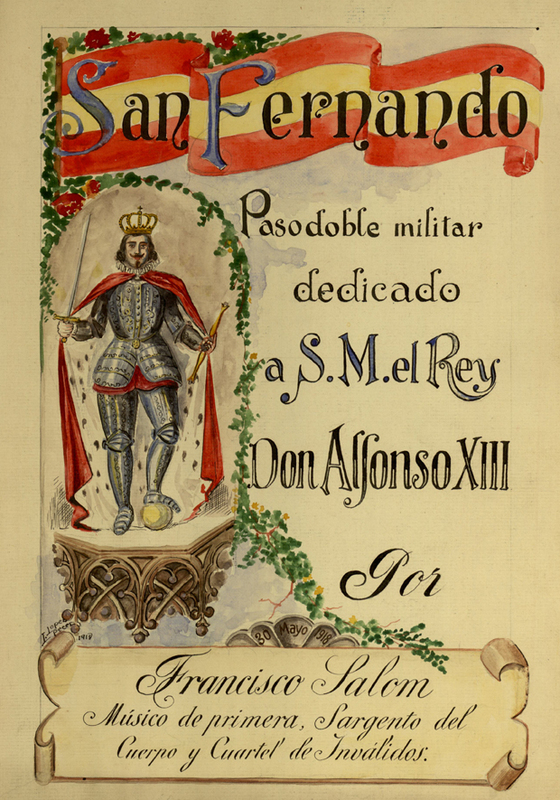 San Fernando
Pasodoble militar
dedicado
a S. M. el Rey
Don Alfonso XIII
Por
1918
30 Mayo 1918
Francisco Salom
Músico de primera, Sargento del
Cuerpo y Cuartel de Inválidos.